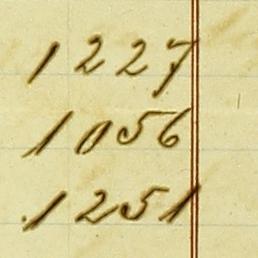 1227
1056
1251